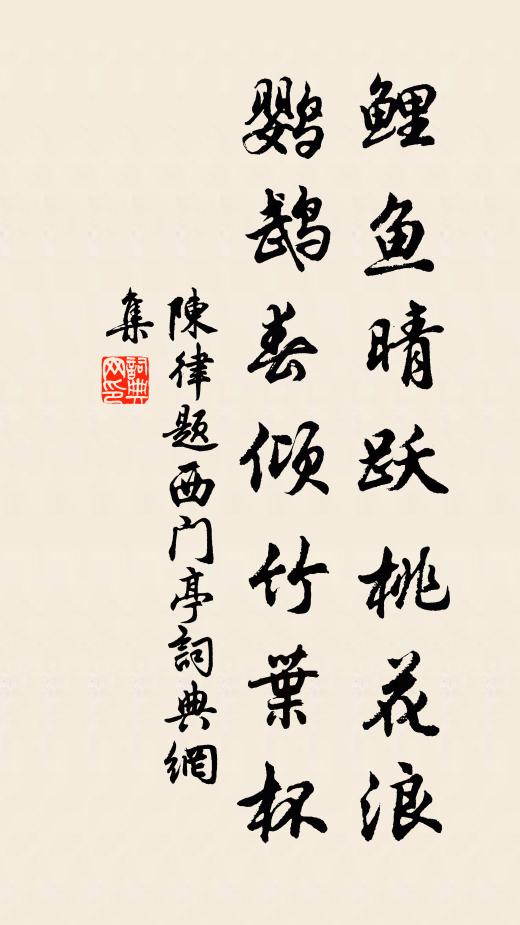 鲤鱼晴跃桃花浪
鹦鹉春倾竹葉杯
陳律题西门亭詞典網
集
詞典
网印